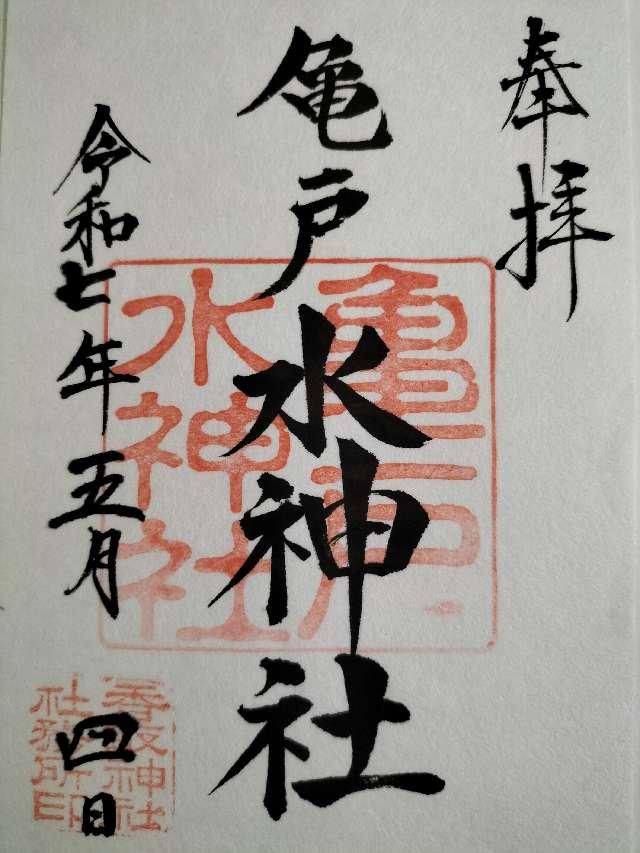 奉拝
亀戸水神社
令和七年五月四日
亀戸
水神社
香取神社
社務所印